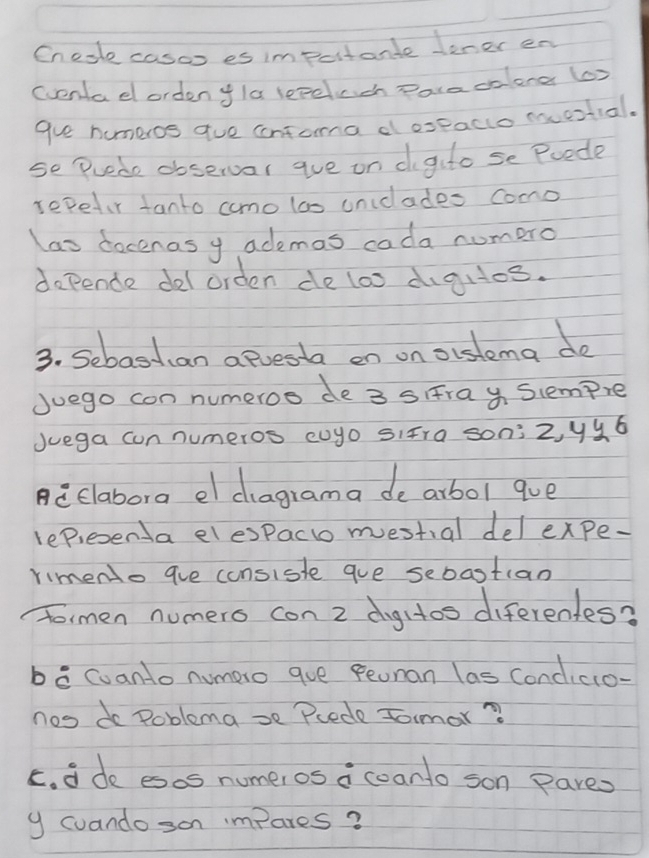 Eneste casos es importante tener en
cuenta el orden y la repeticich para colocar los
que numeros que conforma el espacio muestral.
se Puede observar que un digito se Puede
repetir tanto como las unidades como
las docenas y ademas cada numero
depende del orden de los digitos.
3. Sebastian apuesta en un sistema de
Juego con numeros de 3 sifra y, Siempre
Juega con numeros cuyo sifra son: 2,4y6
A¿ Elabora el diagrama de arbol que
representa el espacio muestral del expe-
rimento que consiste que sebastian
Formen numero con 2 digitos diferentes?
b¿ cuanto numero que reunan las condicio-
nes de Poblema se Puede Formar?
c.¿ de esos numeros ¿ cuanto son Pares
y cuando son imPares?